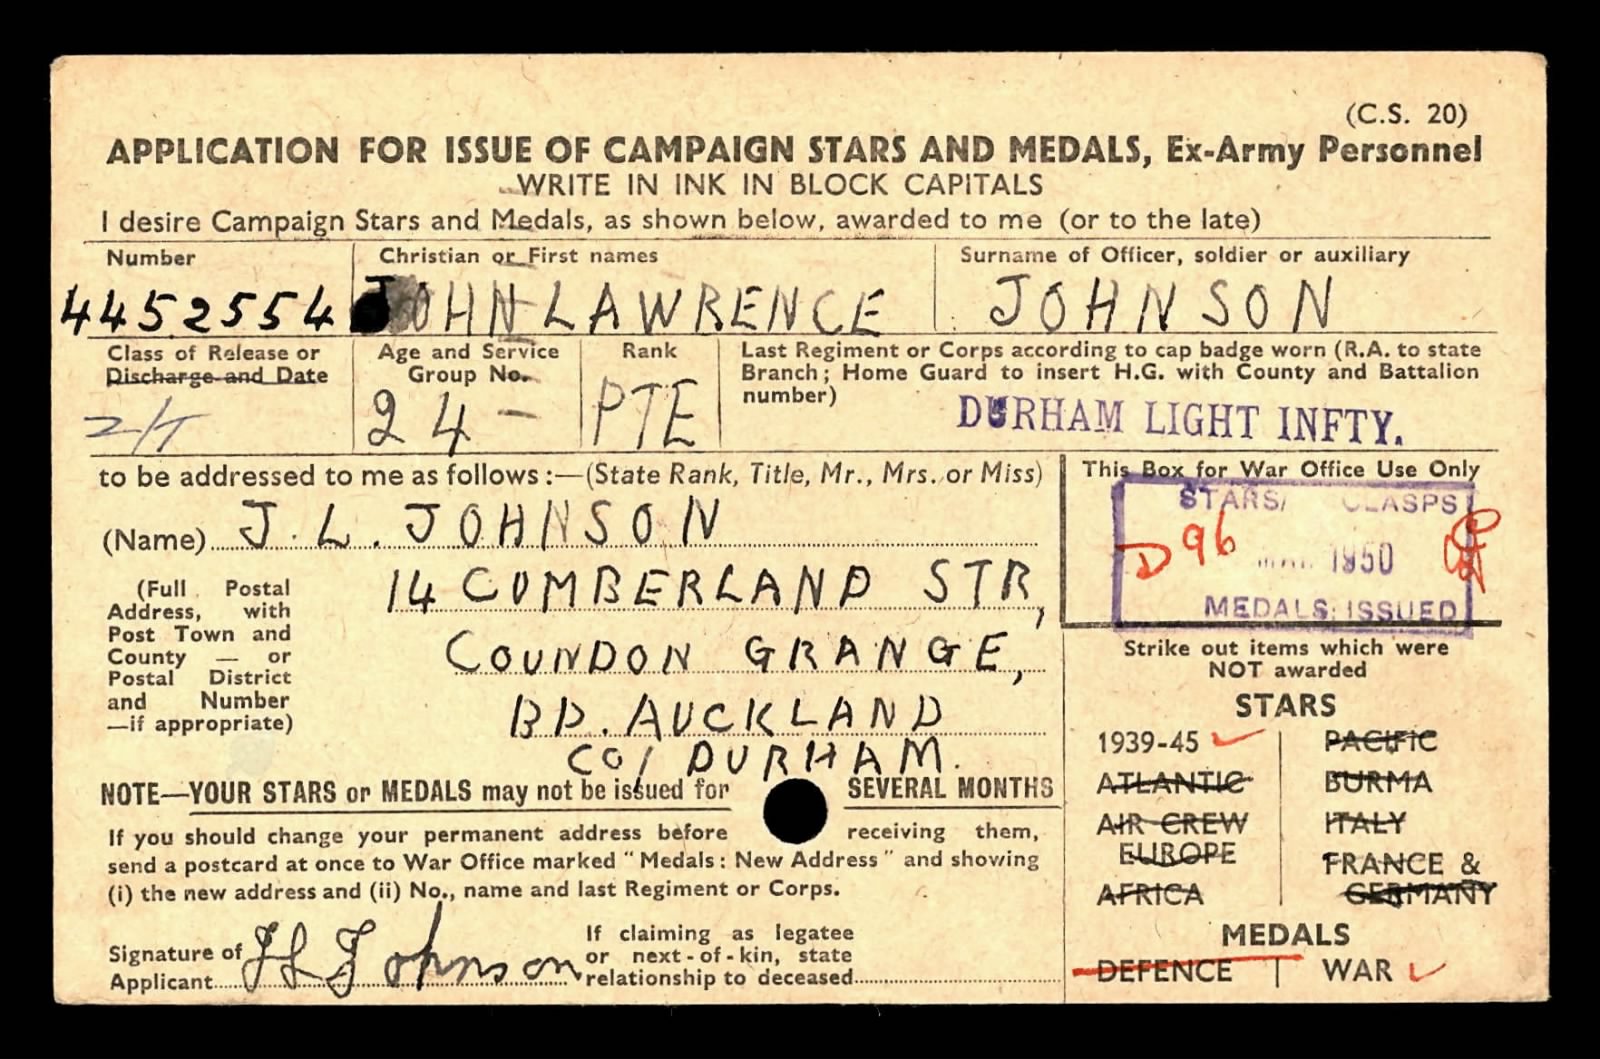 (C.S. 20)
APPLICATION FOR ISSUE OF CAMPAIGN STARS AND MEDALS, Ex-Army Personnel
WRITE IN INK IN BLOCK CAPITALS
I desire Campaign Stars and Medals, as shown below, awarded to me (or to the late)
Number
Christian or First names
Surname of Officer, soldier or auxiliary
4452554
JOHN LAWRENCE
JOHNSON
Class of Release or
Discharge and Date
Age and Service
Group No.
24 -
Rank
PTE
Last Regiment or Corps according to cap badge worn (R.A. to state
Branch; Home Guard to insert H.G. with County and Battalion
number)
DURHAM LIGHT INFTY.
to be addressed to me as follows:—(State Rank, Title, Mr., Mrs. or Miss)
(Name) J. L. JOHNSON
(Full Postal
Address, with
Post Town and
County — or
Postal District
and Number
—if appropriate)
14 CUMBERLAND STR,
COUNDON GRANGE,
BP. AUCKLAND
CO/ DURHAM.
This Box for War Office Use Only
STARS/ CLASPS
D 96
1950
MEDALS ISSUED
Strike out items which were
NOT awarded
STARS
1939-45
ATLANTIC
AIR CREW
EUROPE
AFRICA
PACIFIC
BURMA
ITALY
FRANCE &
GERMANY
MEDALS
DEFENCE
WAR
NOTE—YOUR STARS or MEDALS may not be issued for SEVERAL MONTHS
If you should change your permanent address before receiving them,
send a postcard at once to War Office marked "Medals: New Address" and showing
(i) the new address and (ii) No., name and last Regiment or Corps.
Signature of
Applicant
J L Johnson
If claiming as legatee
or next-of-kin, state
relationship to deceased